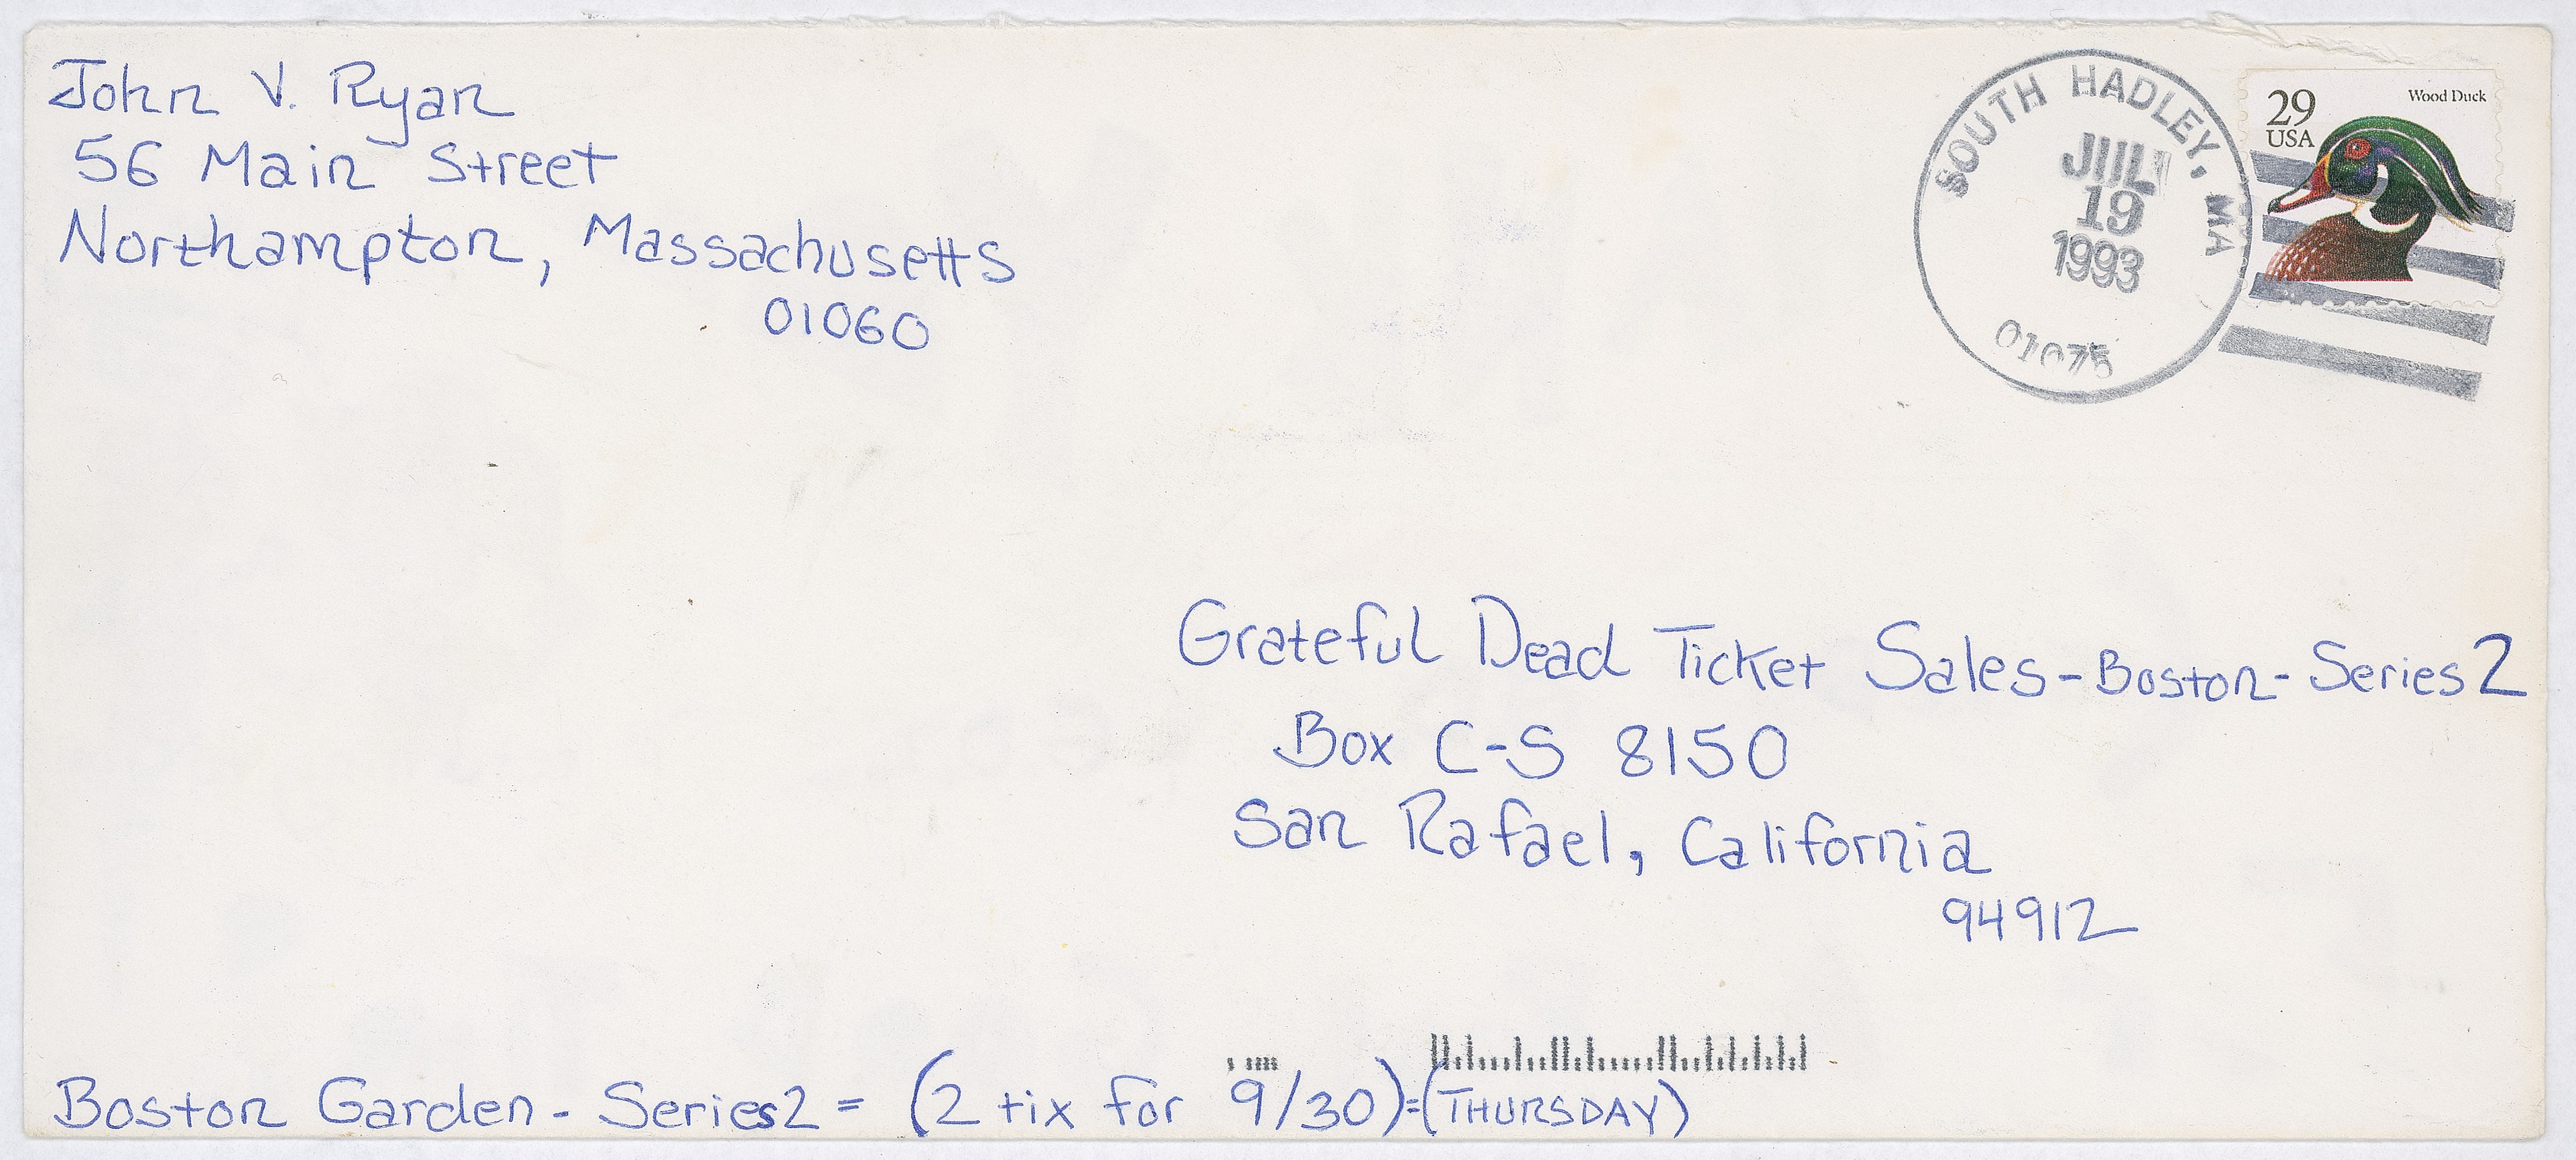 John V. Ryan
56 Main Street
Northampton, Massachusetts
01060
SOUTH HADLEY, MA
JUL
19
1993
01075
29
USA
Wood Duck
Grateful Dead Ticket Sales-Boston-Series 2
Box C-S 8150
San Rafael, California
94912
Boston Garden - Series 2 = (2 tix for 9/30)=(THURSDAY)